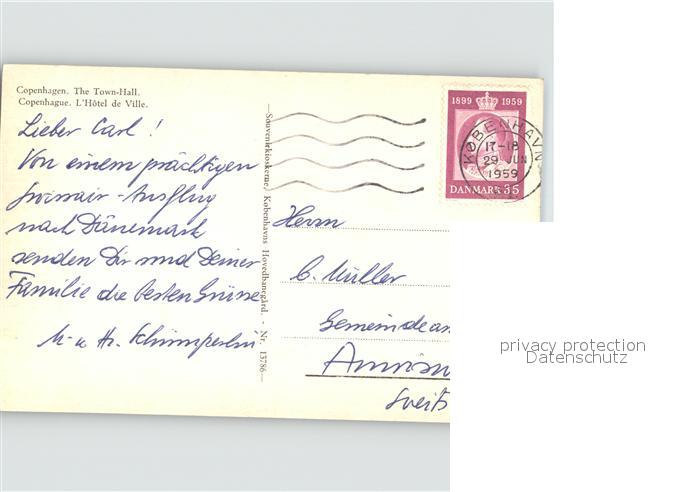 Copenhagen. The Town-Hall.
Copenhague. L'Hôtel de Ville.
Lieber Carl !
Von einem prächtigen
Swissair-Ausflug
nach Dänemark
senden Dir und Deiner
Familie die besten Grüsse
M. u. Hs.
—Souvenirkioskerne, Københavns Hovedbanegård. - Nr. 13786—
1899 1959
DANMARK 35
KØBENHAVN
17-18
29 JUN
1959
Herrn
C. Müller
Gemeindean
privacy protection
Datenschutz